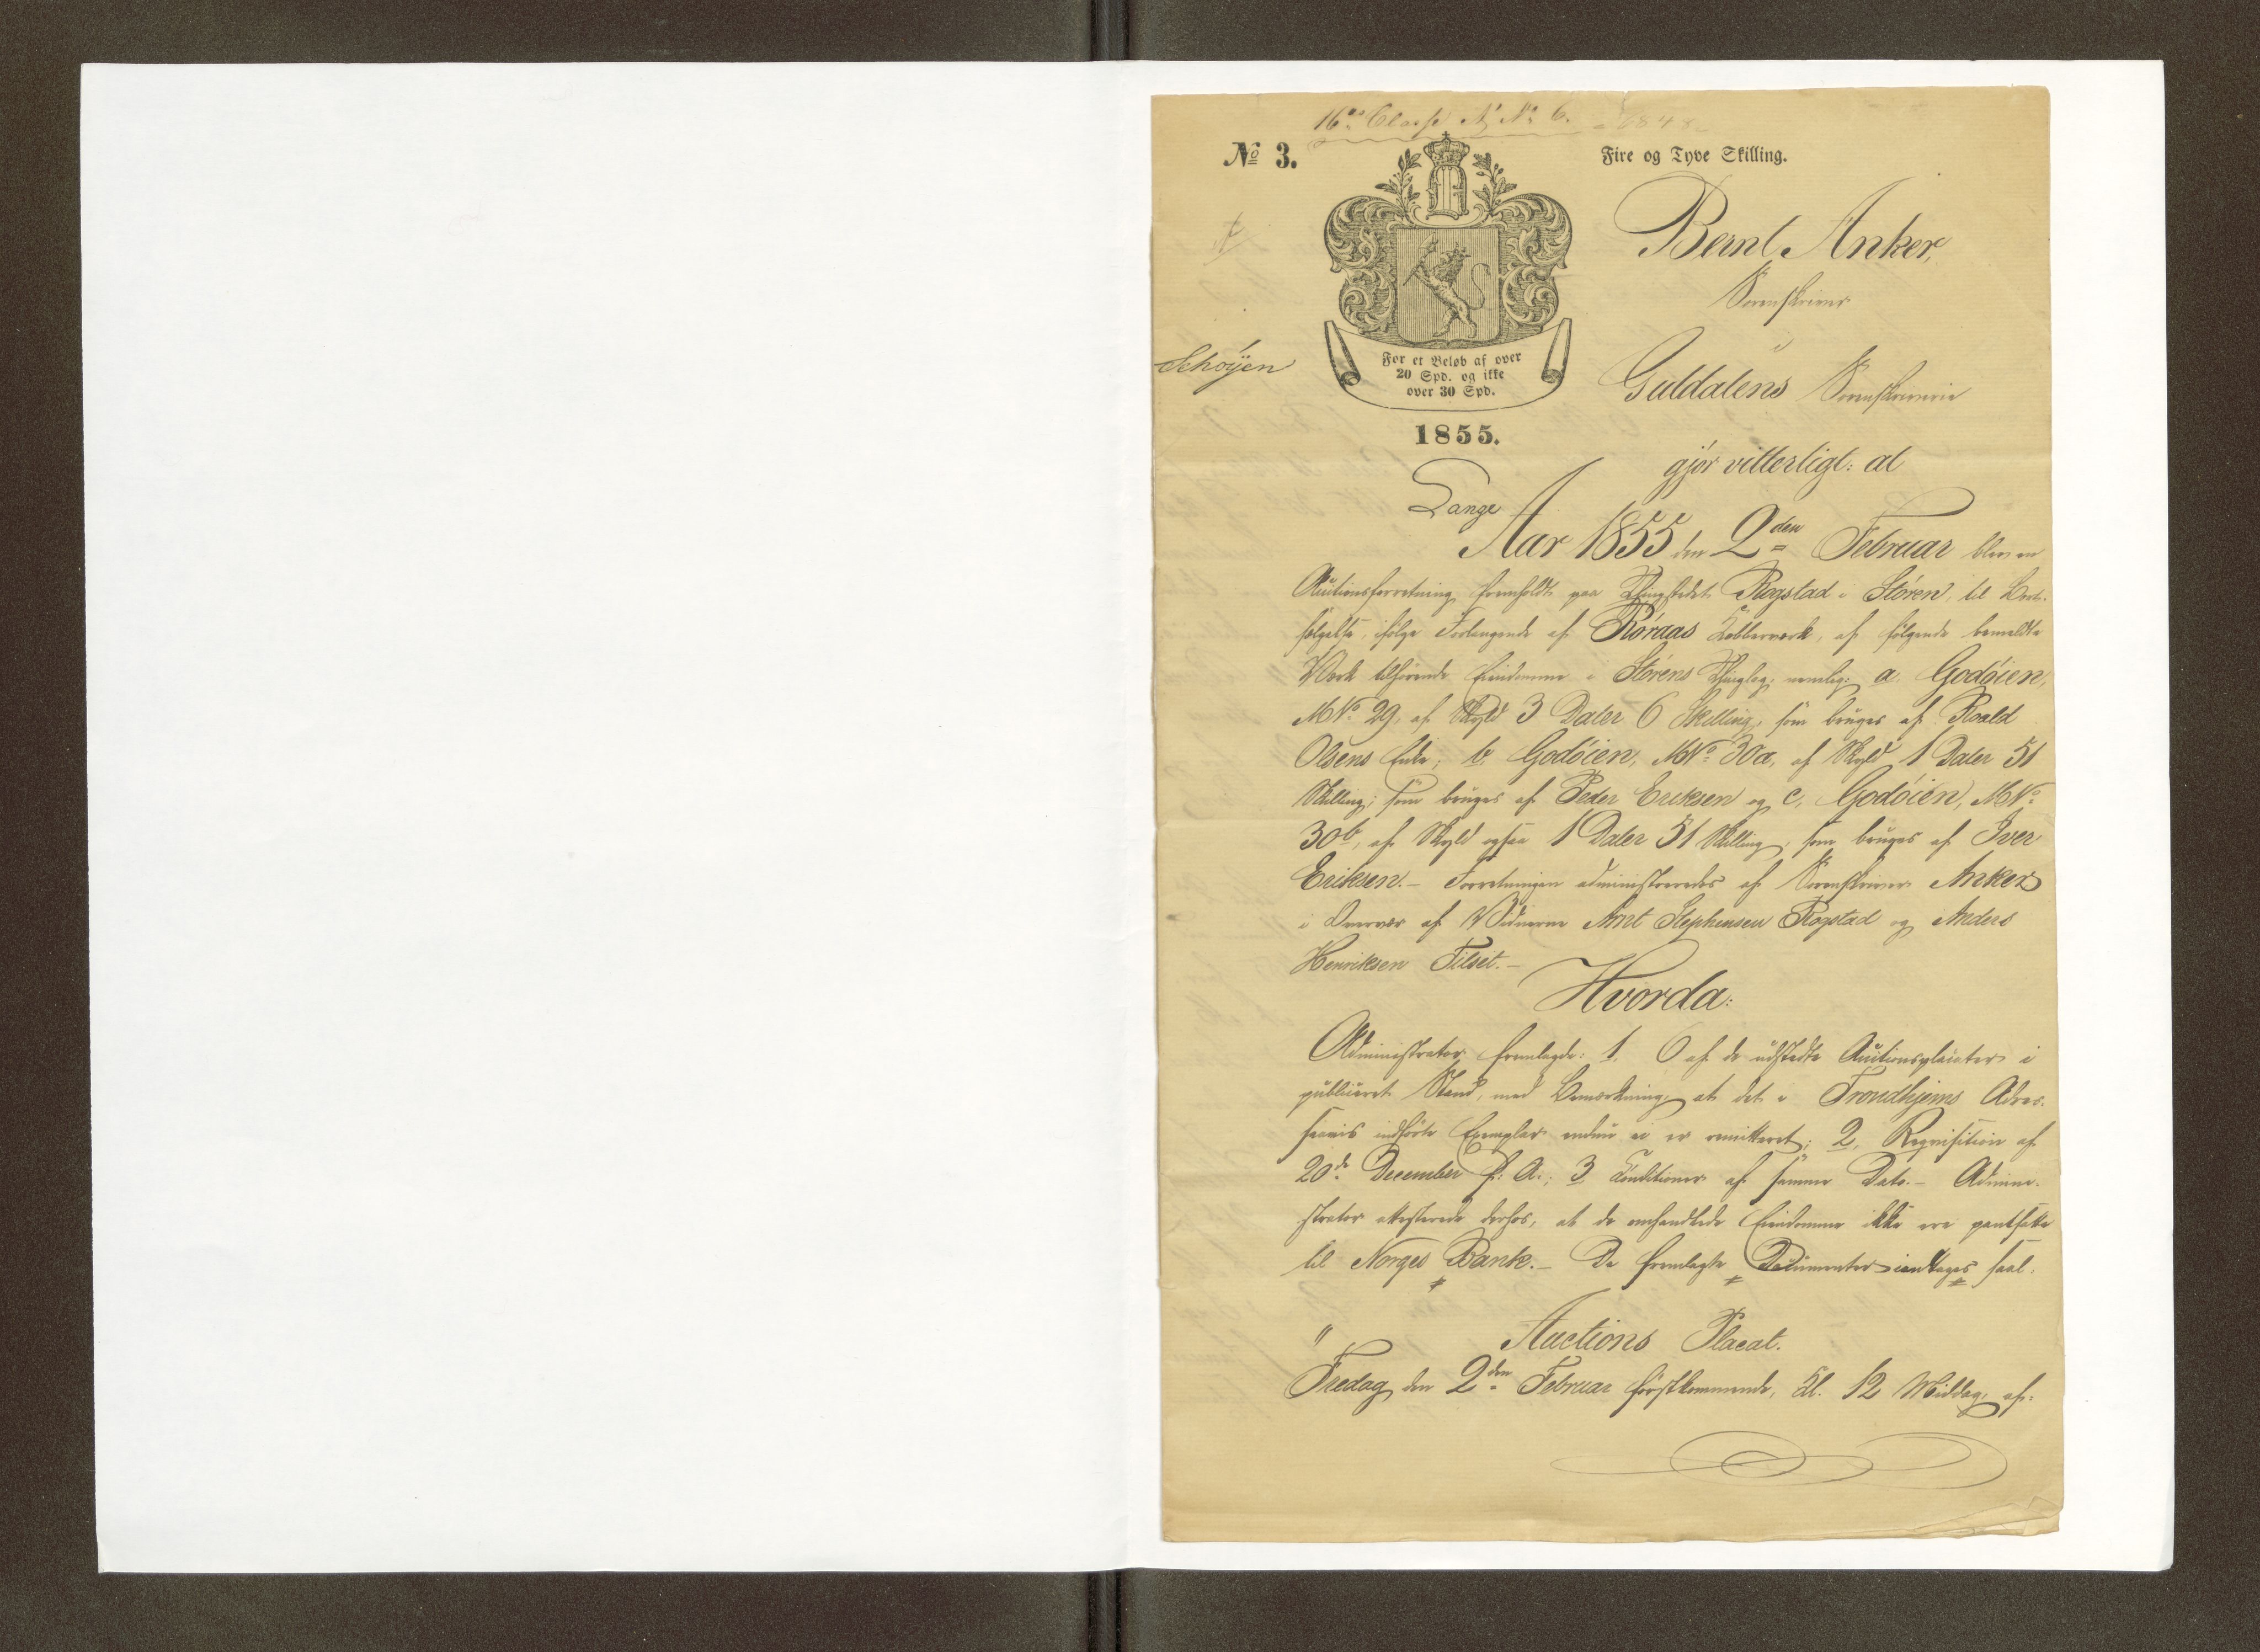 16de Classe Aj No 6.
No 3.
Fire og Tyve Skilling.
Bernt Anker,
Sorenskriver
Schøÿen
For et Beløb af over
20 Spd. og ikke
over 30 Spd.
Guldalens Sorenskriverie
1855.
gjør vitterligt: at
Lange
Aar 1855 den 2den Februar blev en
Auctionsforretning fremholdt paa Thingstedet Rogstad i Støren, til Bort-
sælgelse, ifølge Forlangende af Røraas Kobberværk, af følgende bemeldte
Værk tilhørende Eiendomme i Størens Thinglag, nemlig: a. Godøien,
MNo 29, af Skyld 3 Daler 6 Skilling, som bruges af Roald
Olsens Enke; b. Godøien, MNo 30a, af Skyld 1 Daler 51
Skilling; som bruges af Peder Eriksen og c, Godøien, MNo
30b, af Skyld ogsaa 1 Daler 51 Skilling, som bruges af Iver
Eriksen. – Forretningen administreredes af Sorenskriver Anker
i Overvær af Vidnerne Arnt Stephensen Rogstad og Anders
Henriksen Filset. –
Hvorda:
Administrator fremlagde: 1. 6 af de udstedte Auctionsplacater i
publiceret Stand, med Bemærkning, at det i Trondhjems Adres-
seavis indførte Exemplar endnu ei er remitteret; 2, Reqvisition af
20de December f. A.; 3, Conditioner af samme Dato. – Admini-
strator attesterede derhos, at de omhandlede Eiendomme ikke ere pantsatte
til Norges Bank. – De fremlagte Documenter indtages saal.
" Auctions Placat.
Fredag den 2den Februar førstkommende, Kl. 12 Middag, af-